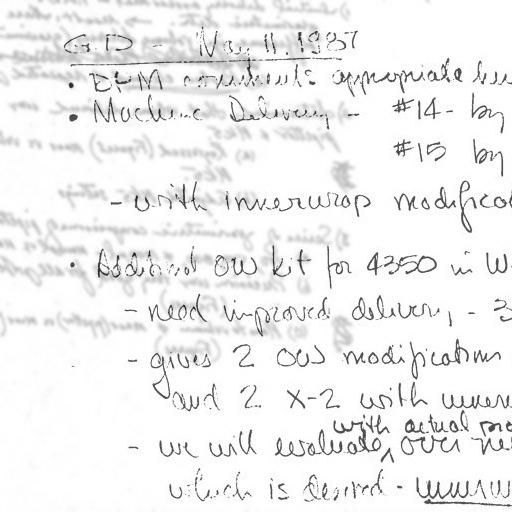 G.D - May 11, 1987
• EFM comments appropriate
• Machine Delivery - #14 - by
#15 by
- with innerwrap
• Additional OW kit for 4350 in
- need improved delivery, - 3
- gives 2 OWs modifications
and 2 X-2 with
with actual
- we will evaluate, over
which is desired -